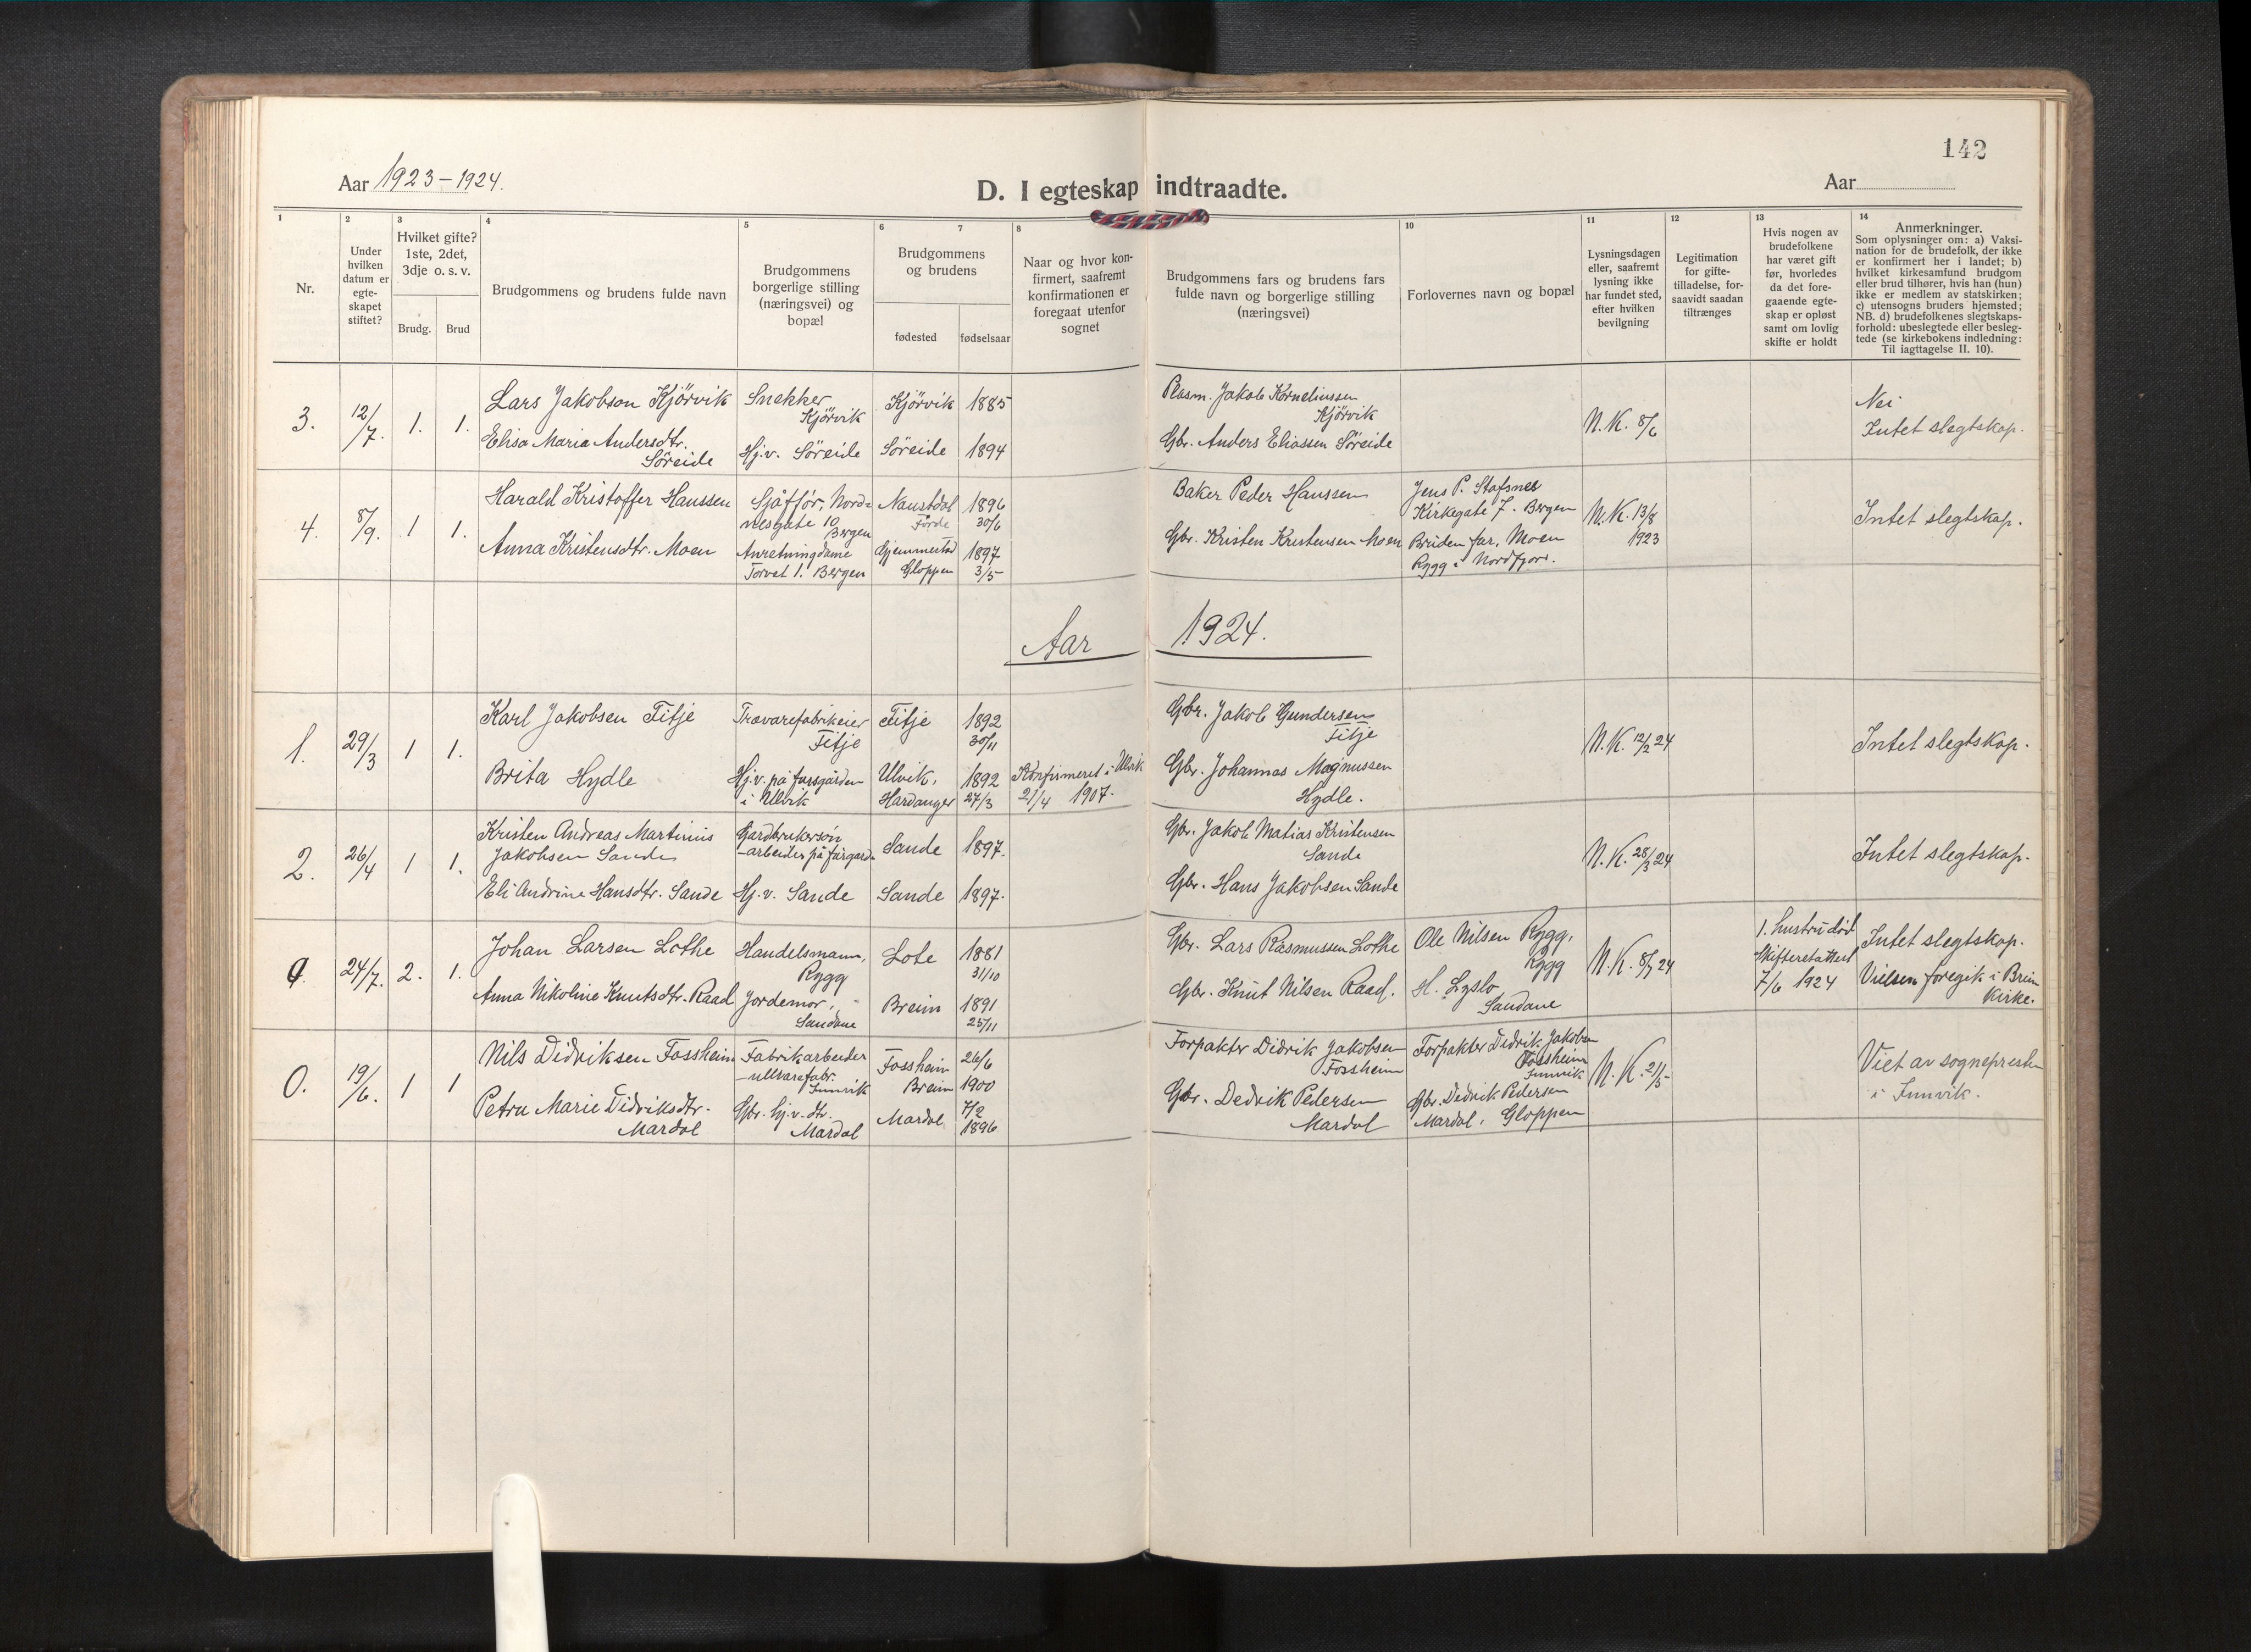 142
Aar 1923-1924.
D. I egteskap indtraadte.
Aar
1
2
3
4
5
6
7
8
10
11
12
13
14
Nr.
Under
hvilken
datum er
egte-
skapet
stiftet?
Hvilket gifte?
1ste, 2det,
3dje o. s. v.
Brudg.
Brud
Brudgommens og brudens fulde navn
Brudgommens
borgerlige stilling
(næringsvei) og
bopæl
Brudgommens
og brudens
fødested
fødselsaar
Naar og hvor kon-
firmert, saafremt
konfirmationen er
foregaat utenfor
sognet
Brudgommens fars og brudens fars
fulde navn og borgerlige stilling
(næringsvei)
Forlovernes navn og bopæl
Lysningsdagen
eller, saafremt
lysning ikke
har fundet sted,
efter hvilken
bevilgning
Legitimation
for gifte-
tilladelse, for-
saavidt saadan
tiltrænges
Hvis nogen av
brudefolkene
har været gift
før, hvorledes
da det fore-
gaaende egte-
skap er opløst
samt om lovlig
skifte er holdt
Anmerkninger.
Som oplysninger om: a) Vaksi-
nation for de brudefolk, der ikke
er konfirmert her i landet; b)
hvilket kirkesamfund brudgom
eller brud tilhører, hvis han (hun)
ikke er medlem av statskirken;
c) utensogns bruders hjemsted;
NB. d) brudefolkenes slegtskaps-
forhold: ubeslegtede eller besleg-
tede (se kirkebokens indledning:
Til iagttagelse II. 10).
3.
12/7.
1.
1.
Lars Jakobson Kjörvik
Elisa Maria Andersdtr.
Söreide
Snekker
Kjörvik
Hj.v. Söreide
Kjörvik
Söreide
1885
1894
Plassm. Jakob Korneliussen
Kjörvik
Gbr. Anders Eliassen Söreide
N.K. 8/6
Nei
Intet slegtskap.
4.
8/9.
1
1.
Harald Kristoffer Hanssen
Anna Kristensdtr. Moen
Sjåffør, Nord-
nesgate 10
Bergen
Anretningdame
Torvet 1. Bergen
Naustdal
Förde
Gjemmestad
Gloppen
1896
30/6
1897
3/5
Baker Peder Hanssen
Gbr. Kristen Kristensen Moen
Jens P. Stafsnes
Kirkegate 7. Bergen
Bruden far, Moen
Rygg i Nordfjord.
N.K. 13/8
1923
Intet slegtskap.
Aar 1924.
1.
29/3
1
1.
Karl Jakobsen Fitje
Brita Hydle
Trævarefabrikeier
Fitje
Hj.v. på farsgården
i Ulvik
Fitje
Ulvik,
Hardanger
1892
30/11
1892
27/3
Konfirmeret i Ulvik
21/4 1907.
Gbr. Jakob Gundersen
Fitje
Gbr. Johannes Magnussen
Hydle.
N.K. 12/2 24
Intet slegtskap.
2.
26/4
1
1.
Kristen Andreas Martinus
Jakobsen Sande
Eli Andrine Hansdtr. Sande
Gardbrukersön
-arbeider på farsgard
Hj.v. Sande
Sande
Sande
1897.
1897.
Gbr. Jakob Matias Kristensen
Sande
Gbr. Hans Jakobsen Sande
N.K. 28/3 24
Intet slegtskap.
24/7.
2.
1.
Johan Larsen Lothe
Anna Nikoline Knutsdtr. Raad
Handelsmann,
Rygg
Jordemor,
Sandane
Lote
Breim
1881
31/10
1891
25/11
Gbr. Lars Rasmussen Lothe
Gbr. Knut Nilsen Raad.
Ole Nilsen Rygg,
Rygg
H. Lyslo
Sandane
N.K. 8/7 24
1. hustru död
Skifteretattest
7/6 1924
Intet slegtskap.
Vielsen foregik i Breim
Kirke.
0.
19/6.
1
1
Nils Didriksen Fossheim
Petra Marie Didriksdtr.
Mardal
Fabrikarbeider
-ullvarefabr.
Innvik
Gbr. hj.v. dtr.
Mardal
Fossheim
Breim
Mardal
26/6
1900
7/2
1896
Forpakter Didrik Jakobsen
Fossheim
Gbr. Dedrik Pedersen
Mardal
Forpakter Didrik Jakobsen
Fossheim
Innvik
Gbr. Dedrik Pedersen
Mardal, Gloppen
N.K. 21/5
Viet av sogneprestn
i Innvik.